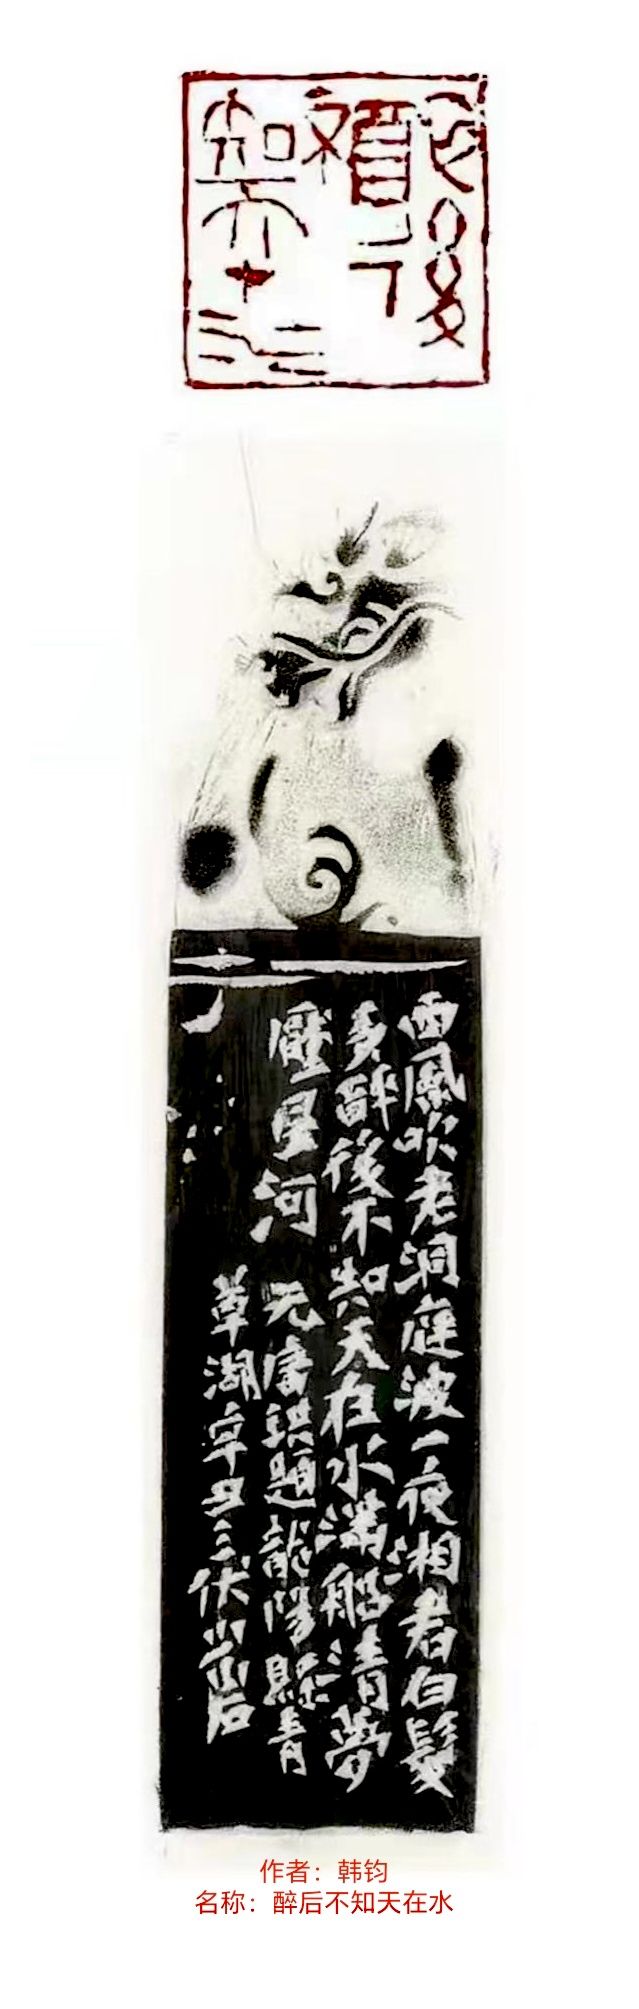 西風吹老洞庭波一夜湘君白髮
多醉後不知天在水滿船清夢
壓星河 元唐珙題龍陽縣青
草湖辛丑三伏
作者：韩钧
名称：醉后不知天在水